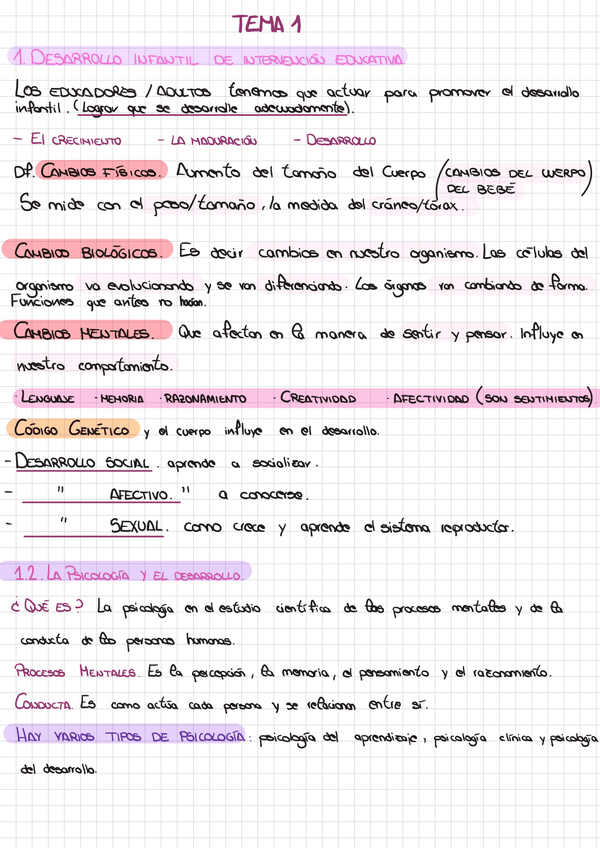 TEMA 1
1. DESARROLLO INFANTIL DE INTERVENCIÓN EDUCATIVA
LOS EDUCADORES / ADULTOS tenemos que actuar para promover el desarrollo
infantil. (Lograr que se desarrolle adecuadamente).
- El CRECIMIENTO - LA MADURACIÓN - DESARROLLO
Df. CAMBIOS FÍSICOS. Aumento del tamaño del Cuerpo (CAMBIOS DEL CUERPO
DEL BEBÉ)
Se mide con el peso/tamaño, la medida del cráneo/tórax.
CAMBIO BIOLÓGICOS. Es decir cambios en nuestro organismo. Las células del
organismo va evolucionando y se van diferenciando. Los órganos van cambiando de forma.
Funciones que antes no hacían.
CAMBIOS MENTALES. Que afectan en la manera de sentir y pensar. Influye en
nuestro comportamiento.
· LENGUAJE · MEMORIA · RAZONAMIENTO · CREATIVIDAD · AFECTIVIDAD (SON SENTIMIENTOS)
CÓDIGO GENÉTICO y el cuerpo influye en el desarrollo.
- DESARROLLO SOCIAL. aprende a socializar.
- " AFECTIVO. " a conocerse.
- " SEXUAL. como crece y aprende el sistema reproductor.
1.2. LA PSICOLOGÍA Y EL DESARROLLO.
¿QUÉ ES? La psicología en el estudio científica de los procesos mentales y de la
conducta de las personas humanas.
PROCESOS MENTALES. Es la percepción, la memoria, el pensamiento y el razonamiento.
CONDUCTA. Es como actúa cada persona y se relacionan entre sí.
HAY VARIOS TIPOS DE PSICOLOGÍA: psicología del aprendizaje, psicología clínica y psicología
del desarrollo.